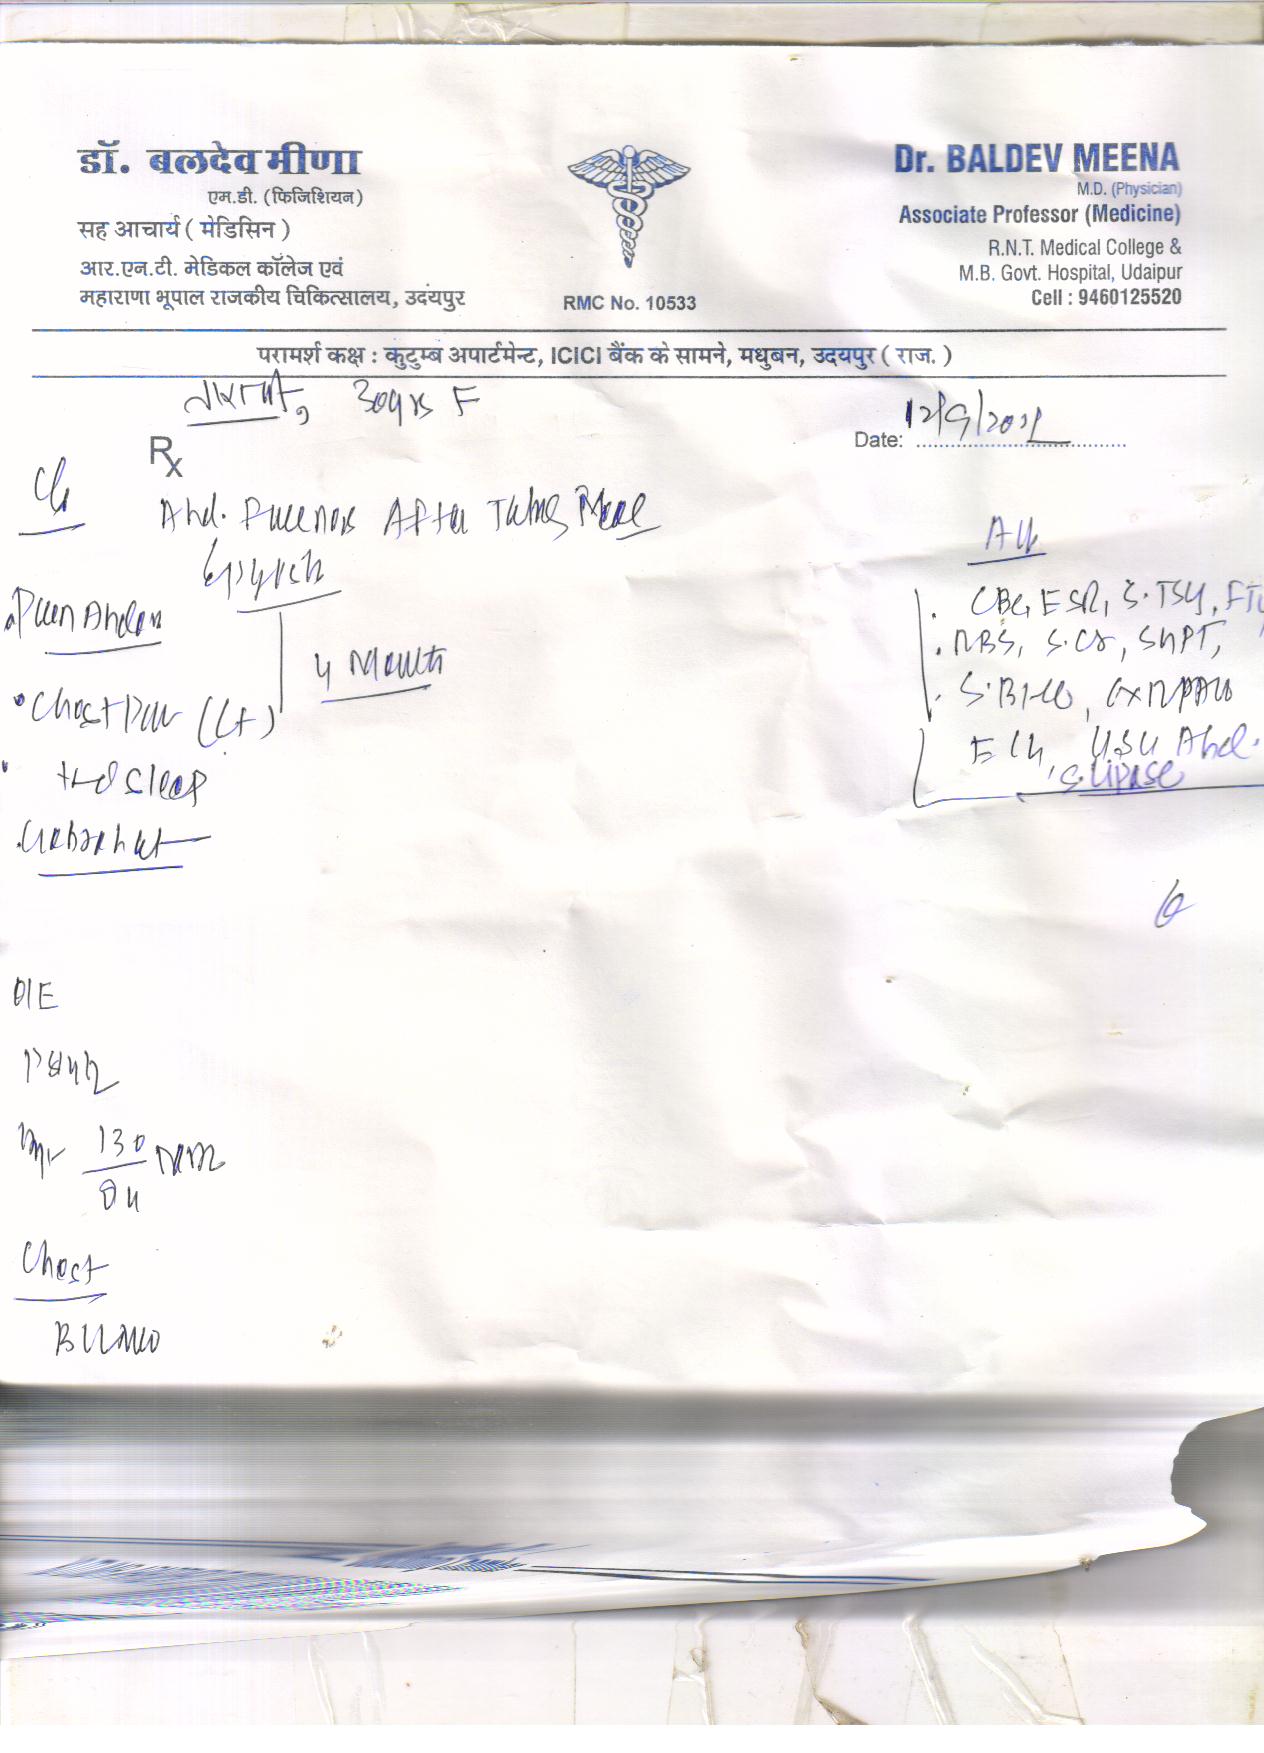 डॉ. बलदेव मीणा
एम.डी. (फिजिशियन)
सह आचार्य ( मेडिसिन )
आर.एन.टी. मेडिकल कॉलेज एवं
महाराणा भूपाल राजकीय चिकित्सालय, उदयपुर
RMC No. 10533
Dr. BALDEV MEENA
M.D. (Physician)
Associate Professor (Medicine)
R.N.T. Medical College &
M.B. Govt. Hospital, Udaipur
Cell : 9460125520
परामर्श कक्ष : कुटुम्ब अपार्टमेन्ट, ICICI बैंक के सामने, मधुबन, उदयपुर ( राज. )
30yrs F
Date: 12/9/2021
Rx
Abd. Fullness After Taking Meal
Pain Abdomen
Chest Pain (Lt)
4 Month
Sleep
Gabrahat
CBC, ESR, S.TSH,
RBS, S.Cr, SGPT,
ECG, USG Abd.
S. Lipase
O/E
130
84
Chest